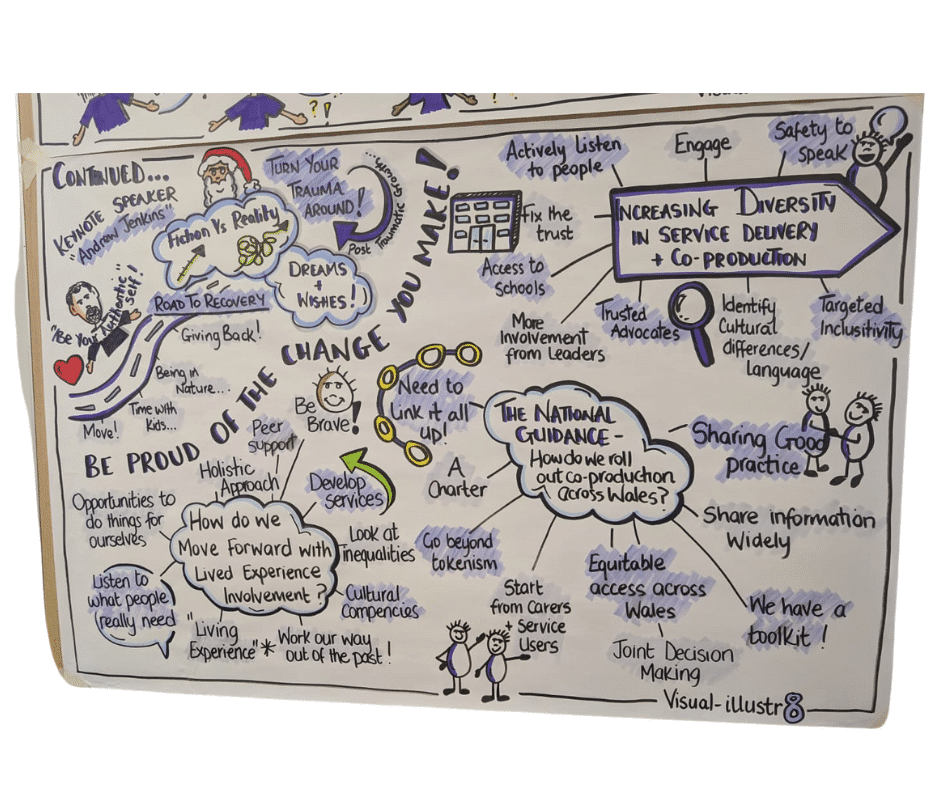 CONTINUED...
KEYNOTE SPEAKER
"Andrew Jenkins"
Fiction Vs Reality
TURN YOUR
TRAUMA
AROUND!
Post Traumatic Growth...
DREAMS
+
WISHES!
"Be Your Authentic self!"
ROAD TO RECOVERY
Giving Back!
Being in
Nature...
Time with
Kids...
Move!
BE PROUD OF THE CHANGE YOU MAKE!
Actively Listen
to people
Engage
Safety to
Speak
INCREASING DIVERSITY
IN SERVICE DELIVERY
+ CO-PRODUCTION
Fix the
trust
Access to
Schools
More
Involvement
from Leaders
Trusted
Advocates
Identify
Cultural
differences/
Language
Targeted
Inclusitivity
Be
Brave!
Peer
support
Holistic
Approach
Opportunities to
do things for
ourselves
Listen to
what people
really need
How do we
Move Forward with
Lived Experience
Involvement?
Develop
services
Look at
inequalities
Cultural
Compencies
"Living
Experience" *
Work our way
out of the past!
Need to
Link it all
up!
THE NATIONAL
GUIDANCE -
How do we roll
out co-production
across Wales?
A
Charter
Go beyond
tokenism
Start
from carers
+ Service
Users
Equitable
access across
Wales
Joint Decision
Making
Sharing Good
practice
Share information
Widely
We have a
toolkit!
Visual-illustr8